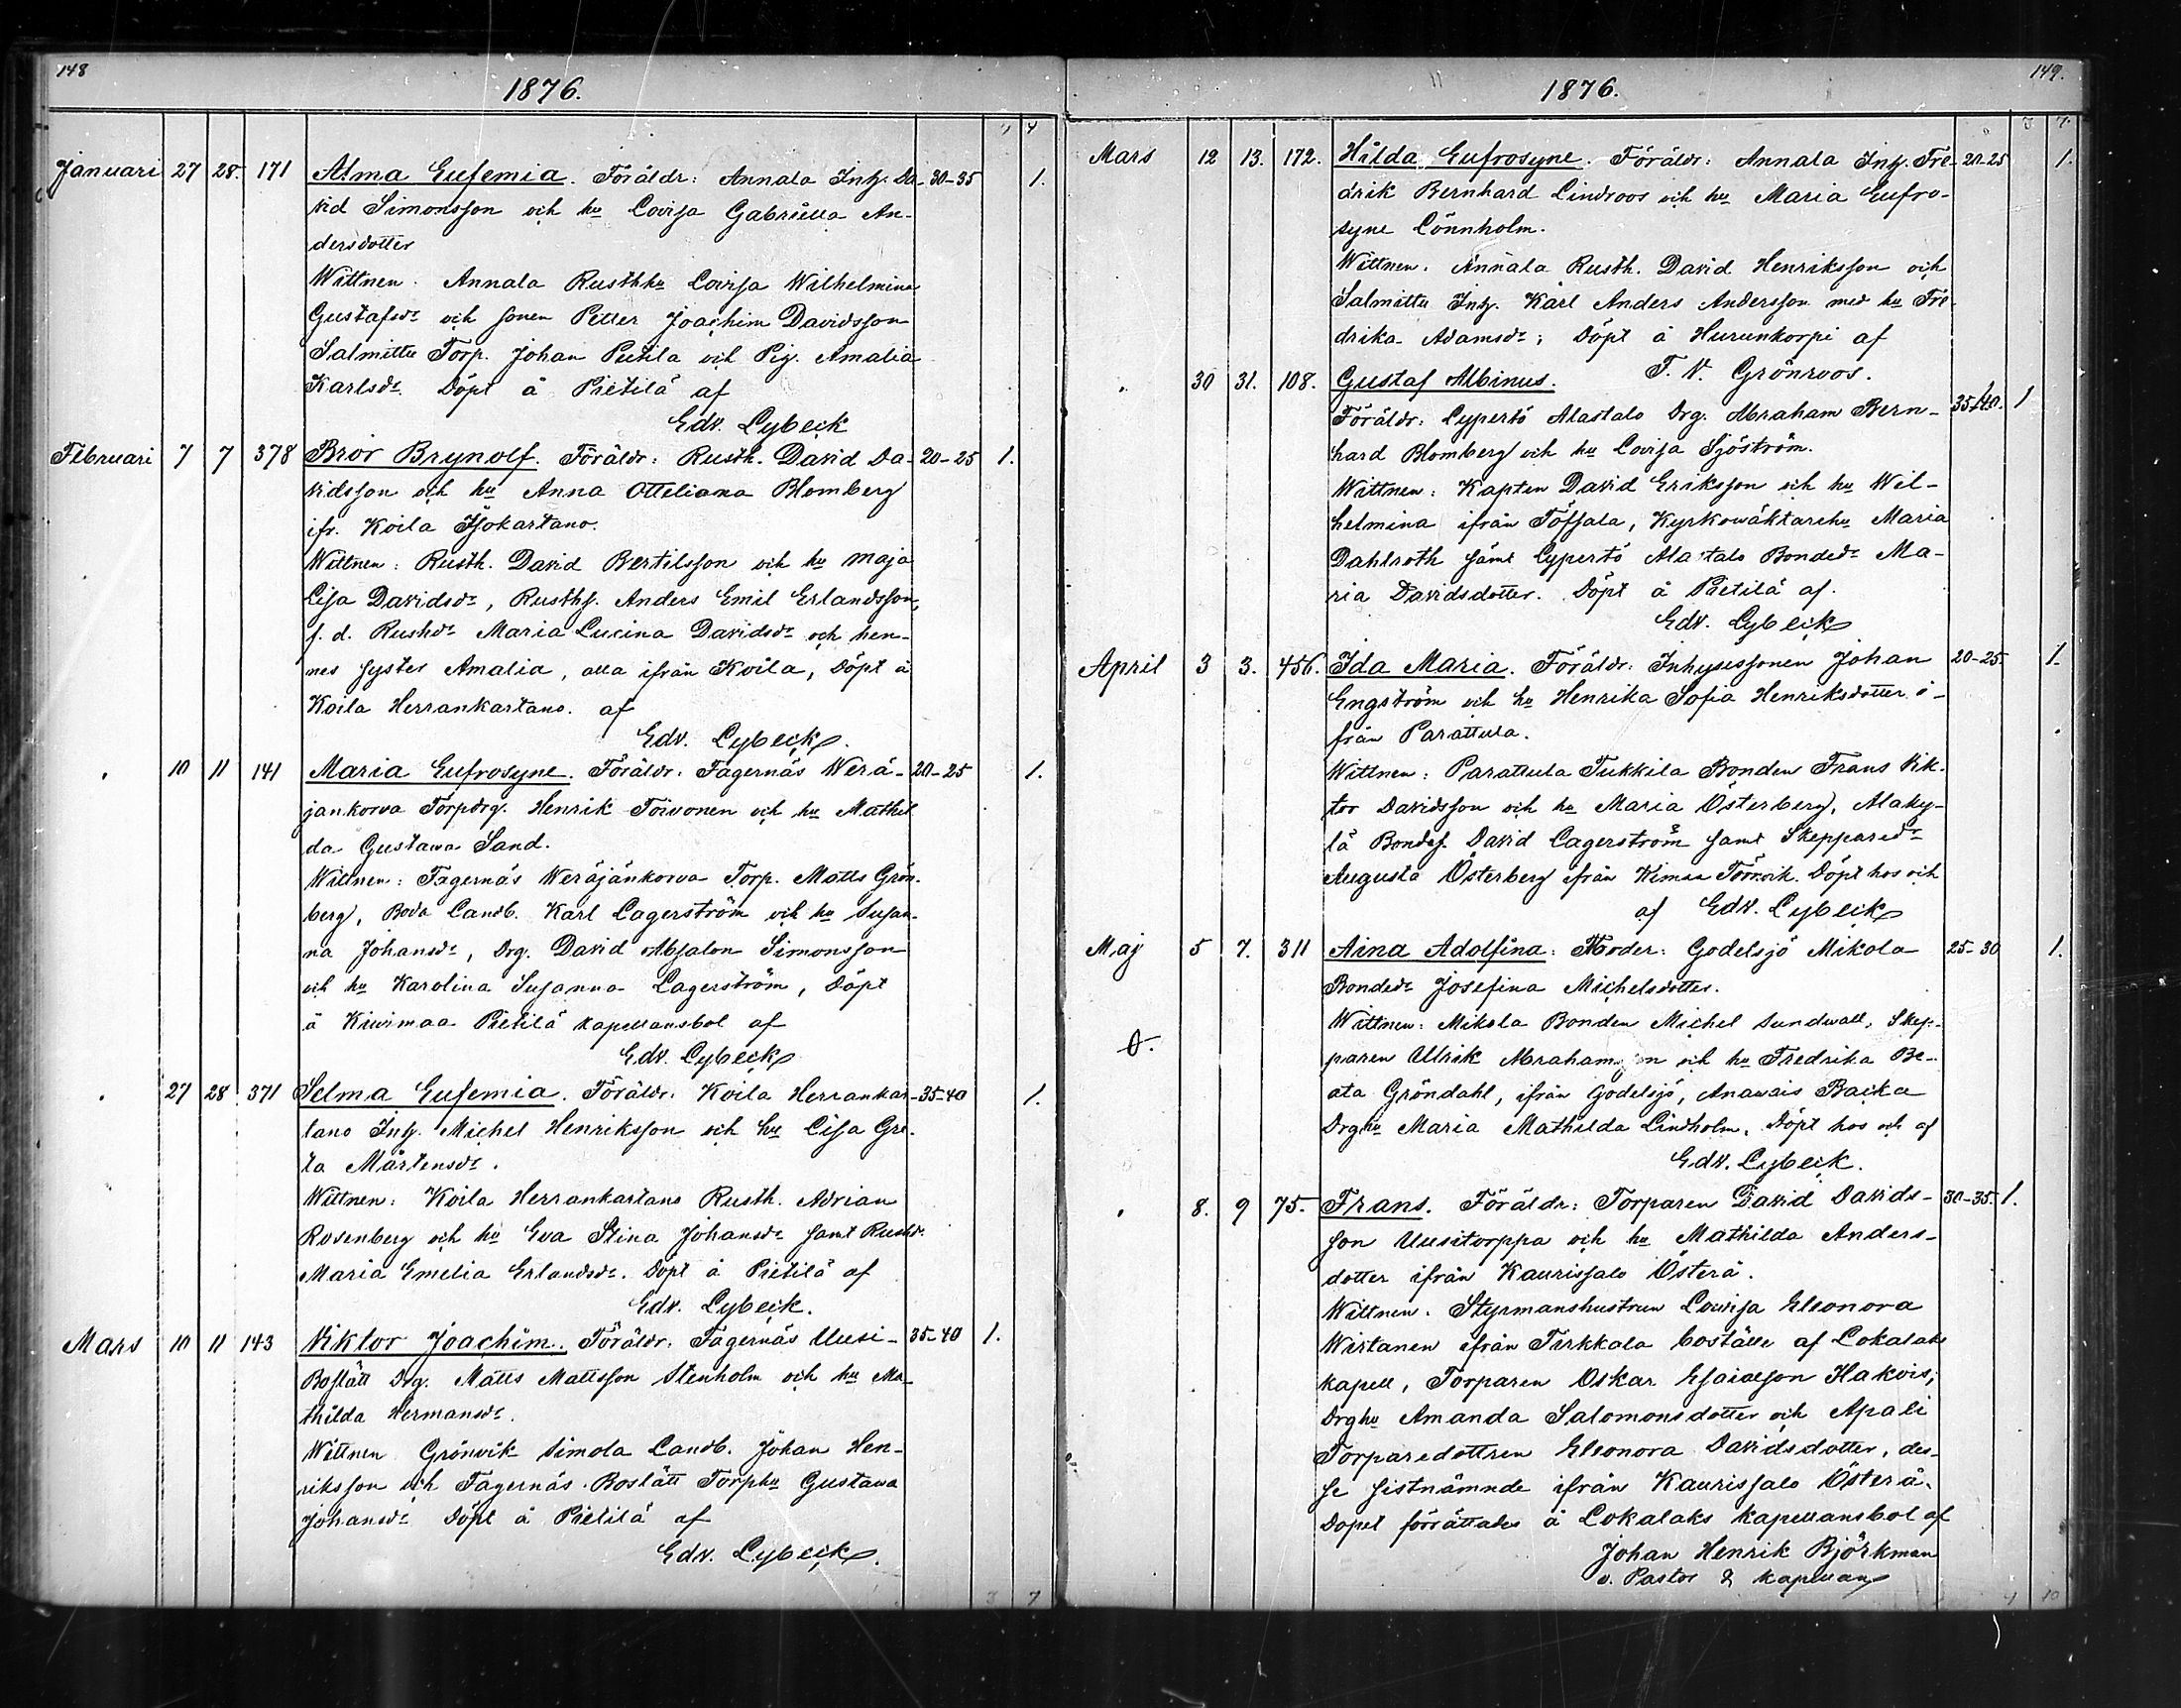 148
1876.
Januari 27 28. 171 Alma Eufemia. Föräldr: Annala Inh. Da- 30-35 1.
vid Simonsson och hu Lovisa Gabriella An-
dersdotter
Wittnen. Annala Rusthhu Lovisa Wilhelmina
Gustafsdr och sonen Petter Joachim Davidsson
Salmittu Torp. Johan Pietilä och Pig. Amalia
Karlsdr. Döpt å Pietilä af
Edv. Lybeck
Februari 7 7 378 Bror Brynolf. Föräldr: Rusth. David Da- 20-25 1.
vidsson och hu Anna Otteliana Blomberg
ifr. Koila Isokartano.
Wittnen: Rusth. David Bertilsson och hu Maja
Lisa Davidsdr, Rusths. Anders Emil Erlandsson,
f. d. Rusthdr Maria Lucina Davidsdr och hen-
nes syster Amalia, alla ifrån Koila, Döpt å
Koila Herrankartano. af
Edv. Lybeck.
" 10 11 141 Maria Eufrosyne. Föräldr: Fagernäs Werä- 20-25 1.
jänkorva Torpdrg. Henrik Toivonen och hu Mathil
da Gustava Sand.
Wittnen: Fagernäs Weräjänkorva Torp. Matts Grön-
berg, Boda Landb. Karl Lagerström och hu Susan-
na Johansdr, Drg. David Absalon Simonsson
och hu Karolina Susanna Lagerström, Döpt
å Kivimaa Pietilä kapellansbol af
Edv. Lybeck
" 27 28 371 Selma Eufemia. Föräldr. Koila Herrankar- 35-40 1.
tano Inh. Michel Henriksson och hu Lisa Gre-
ta Mårtensdr.
Wittnen: Koila Herrankartano Rusth. Adrian
Rosenberg och hu Eva Stina Johansdr samt Rusthdr
Maria Emelia Erlandsdr. Döpt å Pietilä af
Edv. Lybeck.
Mars 10 11 143 Viktor Joachim. Föräldr. Fagernäs Uusi- 35-40 1.
Bostätt Drg. Matts Mattsson Stenholm och hu Ma-
thilda Hermansdr.
Wittnen Grönvik Simola Landb. Johan Hen-
riksson och Fagernäs Bostätt Torphu Gustava
Johansdr Döpt å Pietilä af
Edv. Lybeck.
3 7
149.
1876.
3 7.
Mars 12 13. 172. Hilda Eufrosyne. Föräldr: Annala Inh. Fre- 20-25 1.
drik Bernhard Lindroos och hu Maria Eufro-
syne Lönnholm.
Wittnen. Annala Rusth. David Henriksson och
Salmittu Inh. Karl Anders Andersson med hu Fre-
drika Adamsdr; Döpt å Hurunkorpi af
F. V. Grönroos.
" 30 31. 108. Gustaf Albinus. 35-40. 1
Föräldr: Lypertö Alastalo Drg. Abraham Bern-
hard Blomberg och hu Lovisa Sjöström.
Wittnen: Kapten David Eriksson och hu Wil-
helmina ifrån Töfsala, Kyrkowäktarehu Maria
Dahlroth samt Lypertö Alastalo Bondedr Ma-
ria Davidsdotter. Döpt å Pietilä af.
Edv. Lybeck
April 3 3. 456. Ida Maria. Föräldr: Inhysessonen Johan 20-25. 1.
Engström och hu Henrika Sofia Henriksdotter i-
från Parattula.
Wittnen: Parattula Tukkila Bonden Frans Vik-
tor Davidsson och hu Maria Österberg, Alaky-
lä Bondes. David Lagerström samt Skepparedr
Augusta Österberg ifrån Döpt hos och
af Edv. Lybeck
Maj 5 7. 311 Aina Adolfina: Moder: Godelsjö Mikola 25-30 1.
Bondedr Josefina Michelsdotter.
Wittnen: Mikola Bonden Michel Sundwall, Skep-
paren Ulrik Abrahamsson och hu Fredrika Be-
ata Gröndahl, ifrån Godelsjö, Anawais Backa
Drghu Maria Mathilda Lindholm. Döpt hos och af
Edv. Lybeck.
" 8. 9 75. Frans. Föräldr: Torparen David Davids- 30-35. 1.
son Uusitorppa och hu Mathilda Anders-
dotter ifrån Kaurissalo Österå.
Wittnen. Styrmanshustrun Lovisa Eleonora
Wirtanen ifrån Tirkkala boställe af Lokalaks
kapell, Torparen Oskar Esaiasson Hakois;
Drghu Amanda Salomonsdotter och Apali
Torparedottren Eleonora Davidsdotter, des-
se sistnämnde ifrån Kaurissalo Österå.
Dopet förrättades å Lokalaks kapellansbol af
Johan Henrik Björkman
v. Pastor & kapellan
4 10